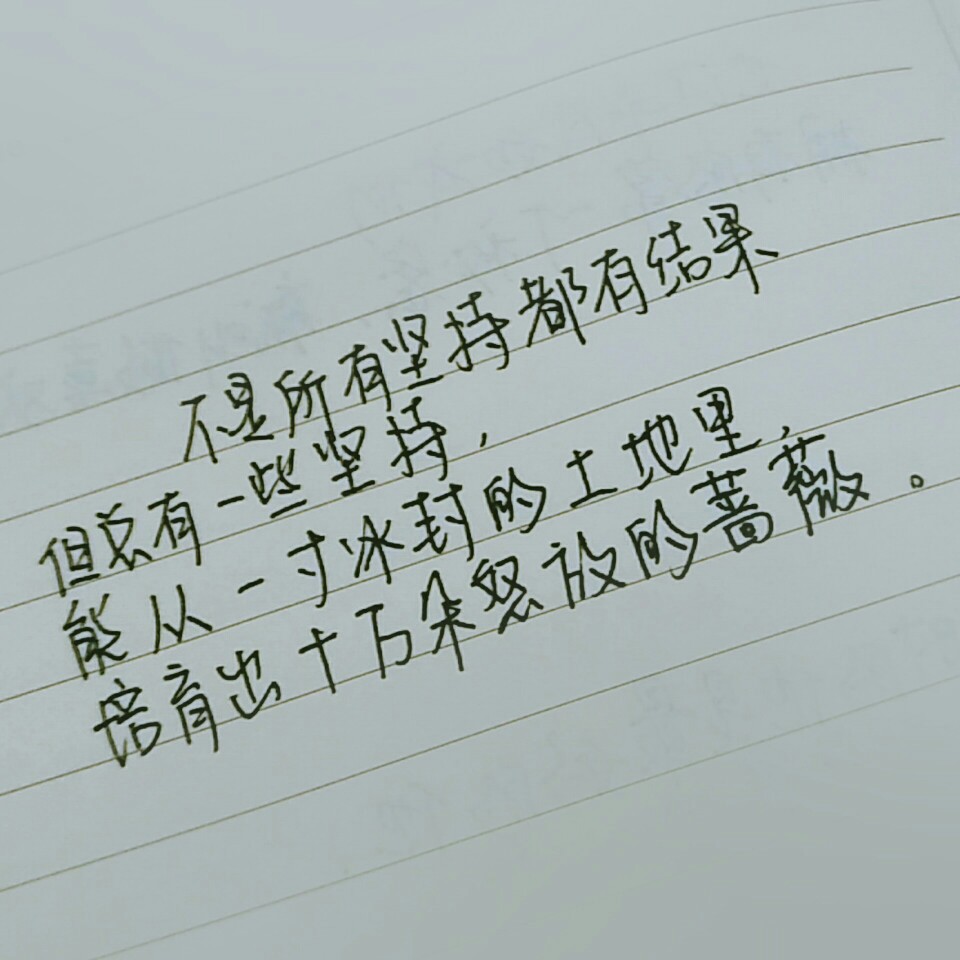 不是所有坚持都有结果
但总有一些坚持,
能从一寸冰封的土地里,
培育出十万朵怒放的蔷薇。